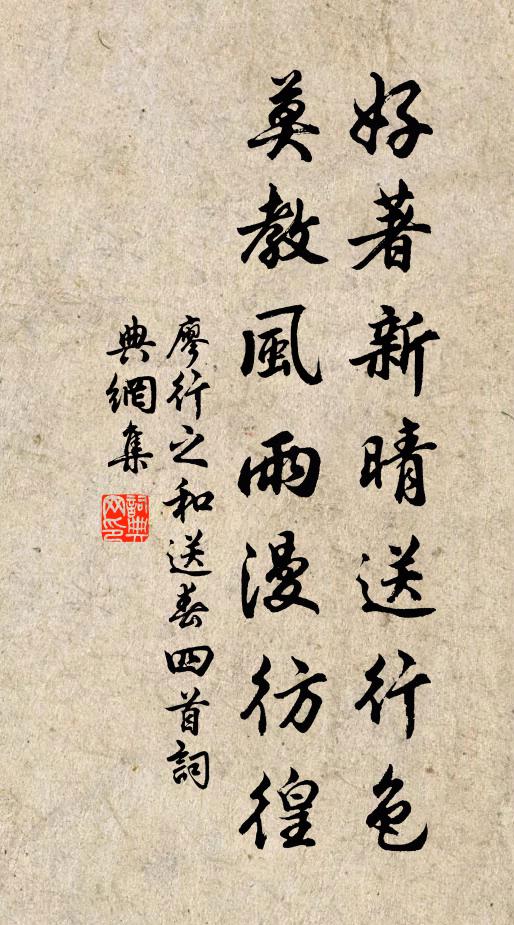 好著新晴送行色
莫教風雨漫彷徨
廖行之和送春四首詞
典網集
詞典网印